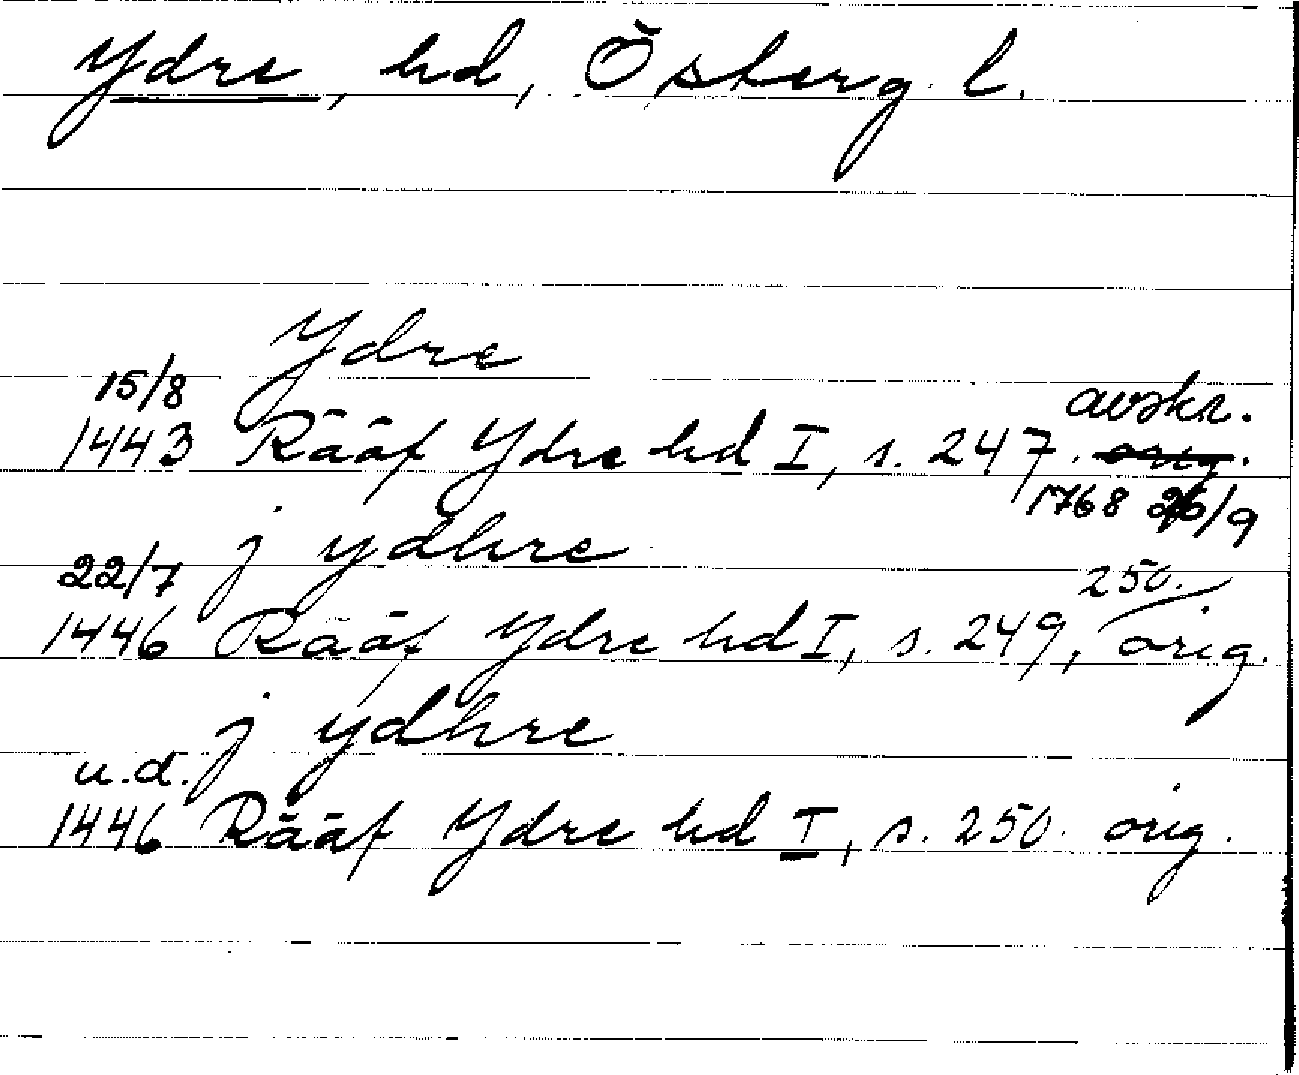 Ydre, hd, Östergl.
Ydre
15/8 avskr.
1443 Rääf Ydre hd I, s. 247. orig.
1768 26/9
j ydhre
22/7 250.
1446 Rääf Ydre hd I, s. 249, orig.
j ydhre
u.d.
1446 Rääf Ydre hd I, s. 250. orig.